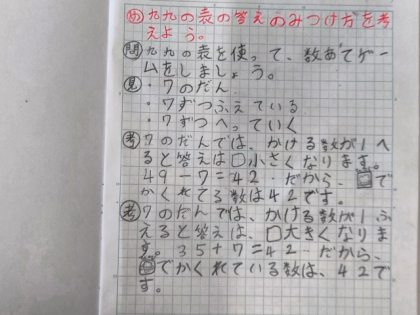 め 九九の表の答えのみつけ方を考
えよう。
問 九九の表を使って、数あてゲー
ムをしましょう。
見・7のだん
・7ずつふえている
・7ずつへっていく
考 7のだんでは、かける数が1へ
ると答えは□小さくなります。
49-7=42 だから、 で
かくれてる数は42です。
考 7のだんでは、かける数が1ふ
えると答えは、□大きくなりま
す。35+7=42 だから、
でかくれている数は、42で
す。